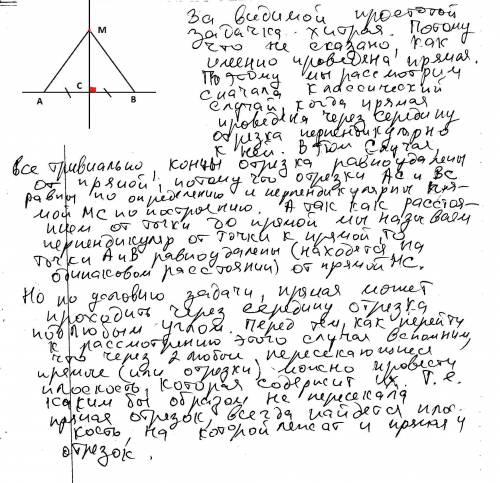 За видимой простотой
задачка хитрая. Потому
что не сказано, как
именно проведена прямая.
Поэтому мы рассмотрим
сначала классический
случай, когда прямая
проведена через середину
отрезка перпендикулярно
к ней. В этом случае,
M
A
C
B
все тривиально концы отрезка равноудалены
от прямой, потому что отрезки AC и BC
равны по определению и перпендикулярны пря-
мой MC по построению. А так как расстоя-
нием от точки до прямой мы называем
перпендикуляр от точки к прямой, то
точки A и B равноудалены (находятся на
одинаковом расстоянии) от прямой MC.
Но по условию задачи, прямая может
проходить через середину отрезка
под любым углом. Перед тем, как перейти
к рассмотрению этого случая вспомним,
что через 2 любые пересекающиеся
прямые (или отрезки) можно провести
плоскость, которая содержит их. Т.е.
каким бы образом не пересекала
прямая отрезок, всегда найдется плос-
кость, на которой лежат и прямая и
отрезок.